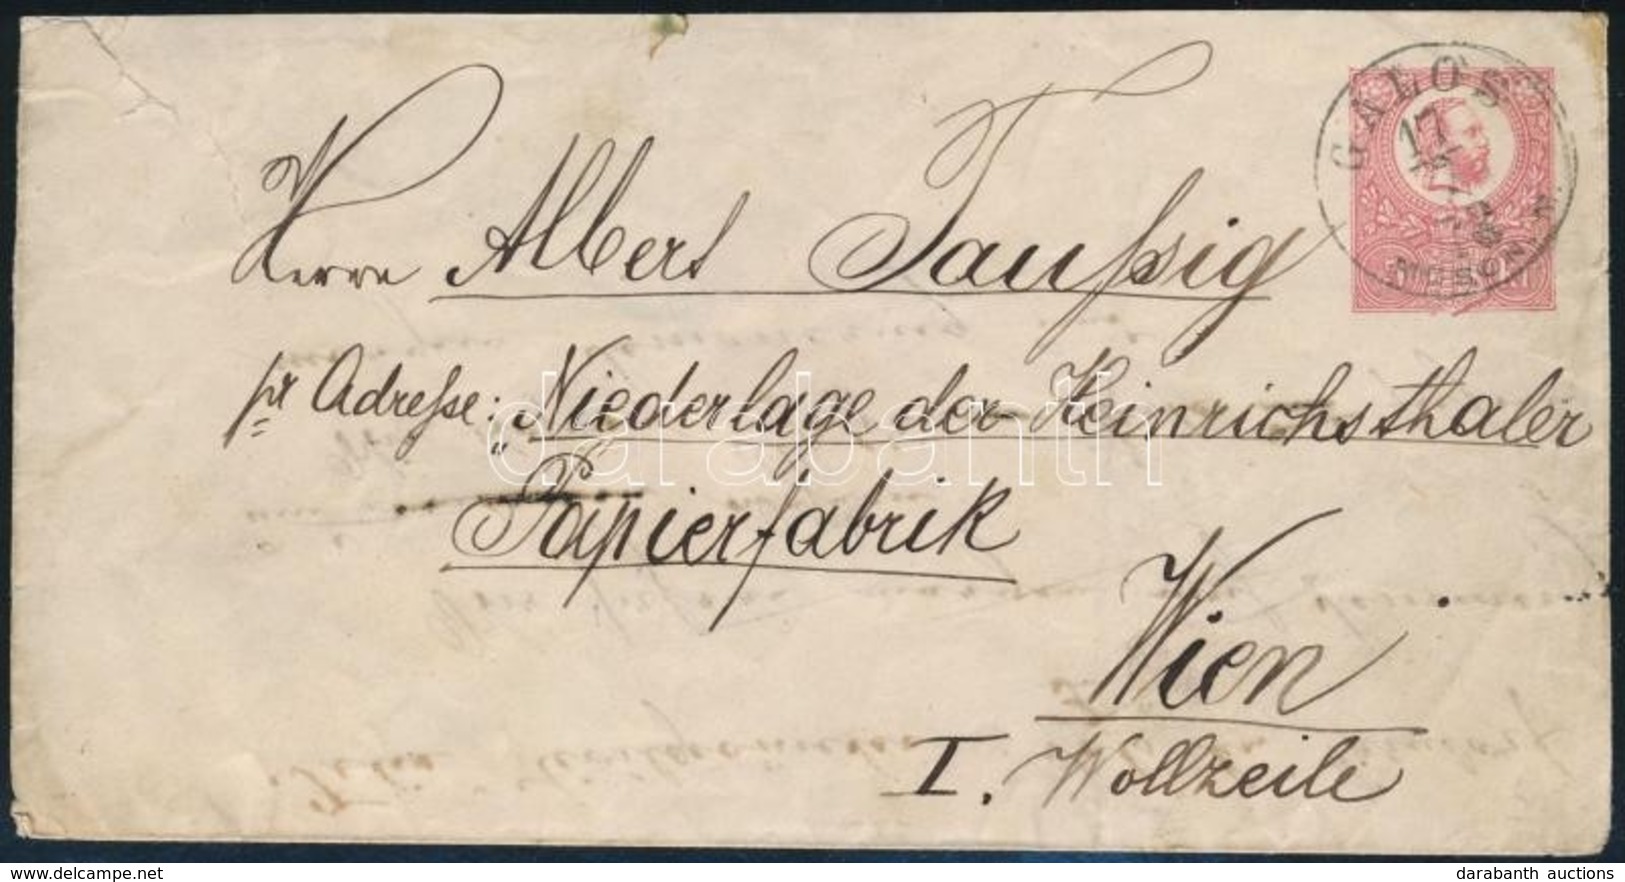 Herrn Albert Taußig
pr Adresse: „Niederlage der Heinrichsthaler
Papierfabrik
Wien
I. Wollzeile
GALOS
17
MOSON
darabanth
delcampe.net
darabanth auctions